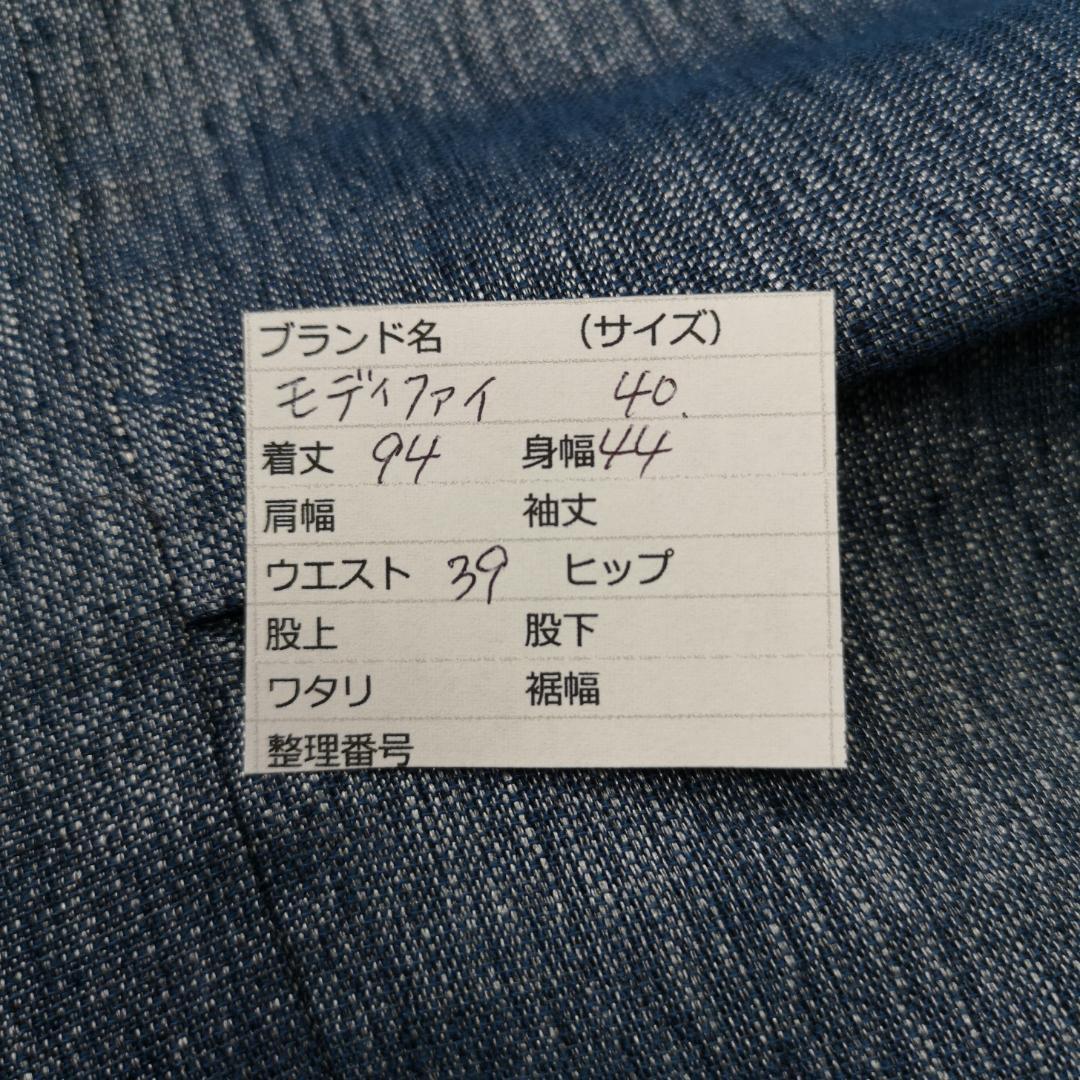 ブランド名 （サイズ）
モディファイ 40.
着丈 94 身幅 44
肩幅 袖丈
ウエスト 39 ヒップ
股上 股下
ワタリ 裾幅
整理番号